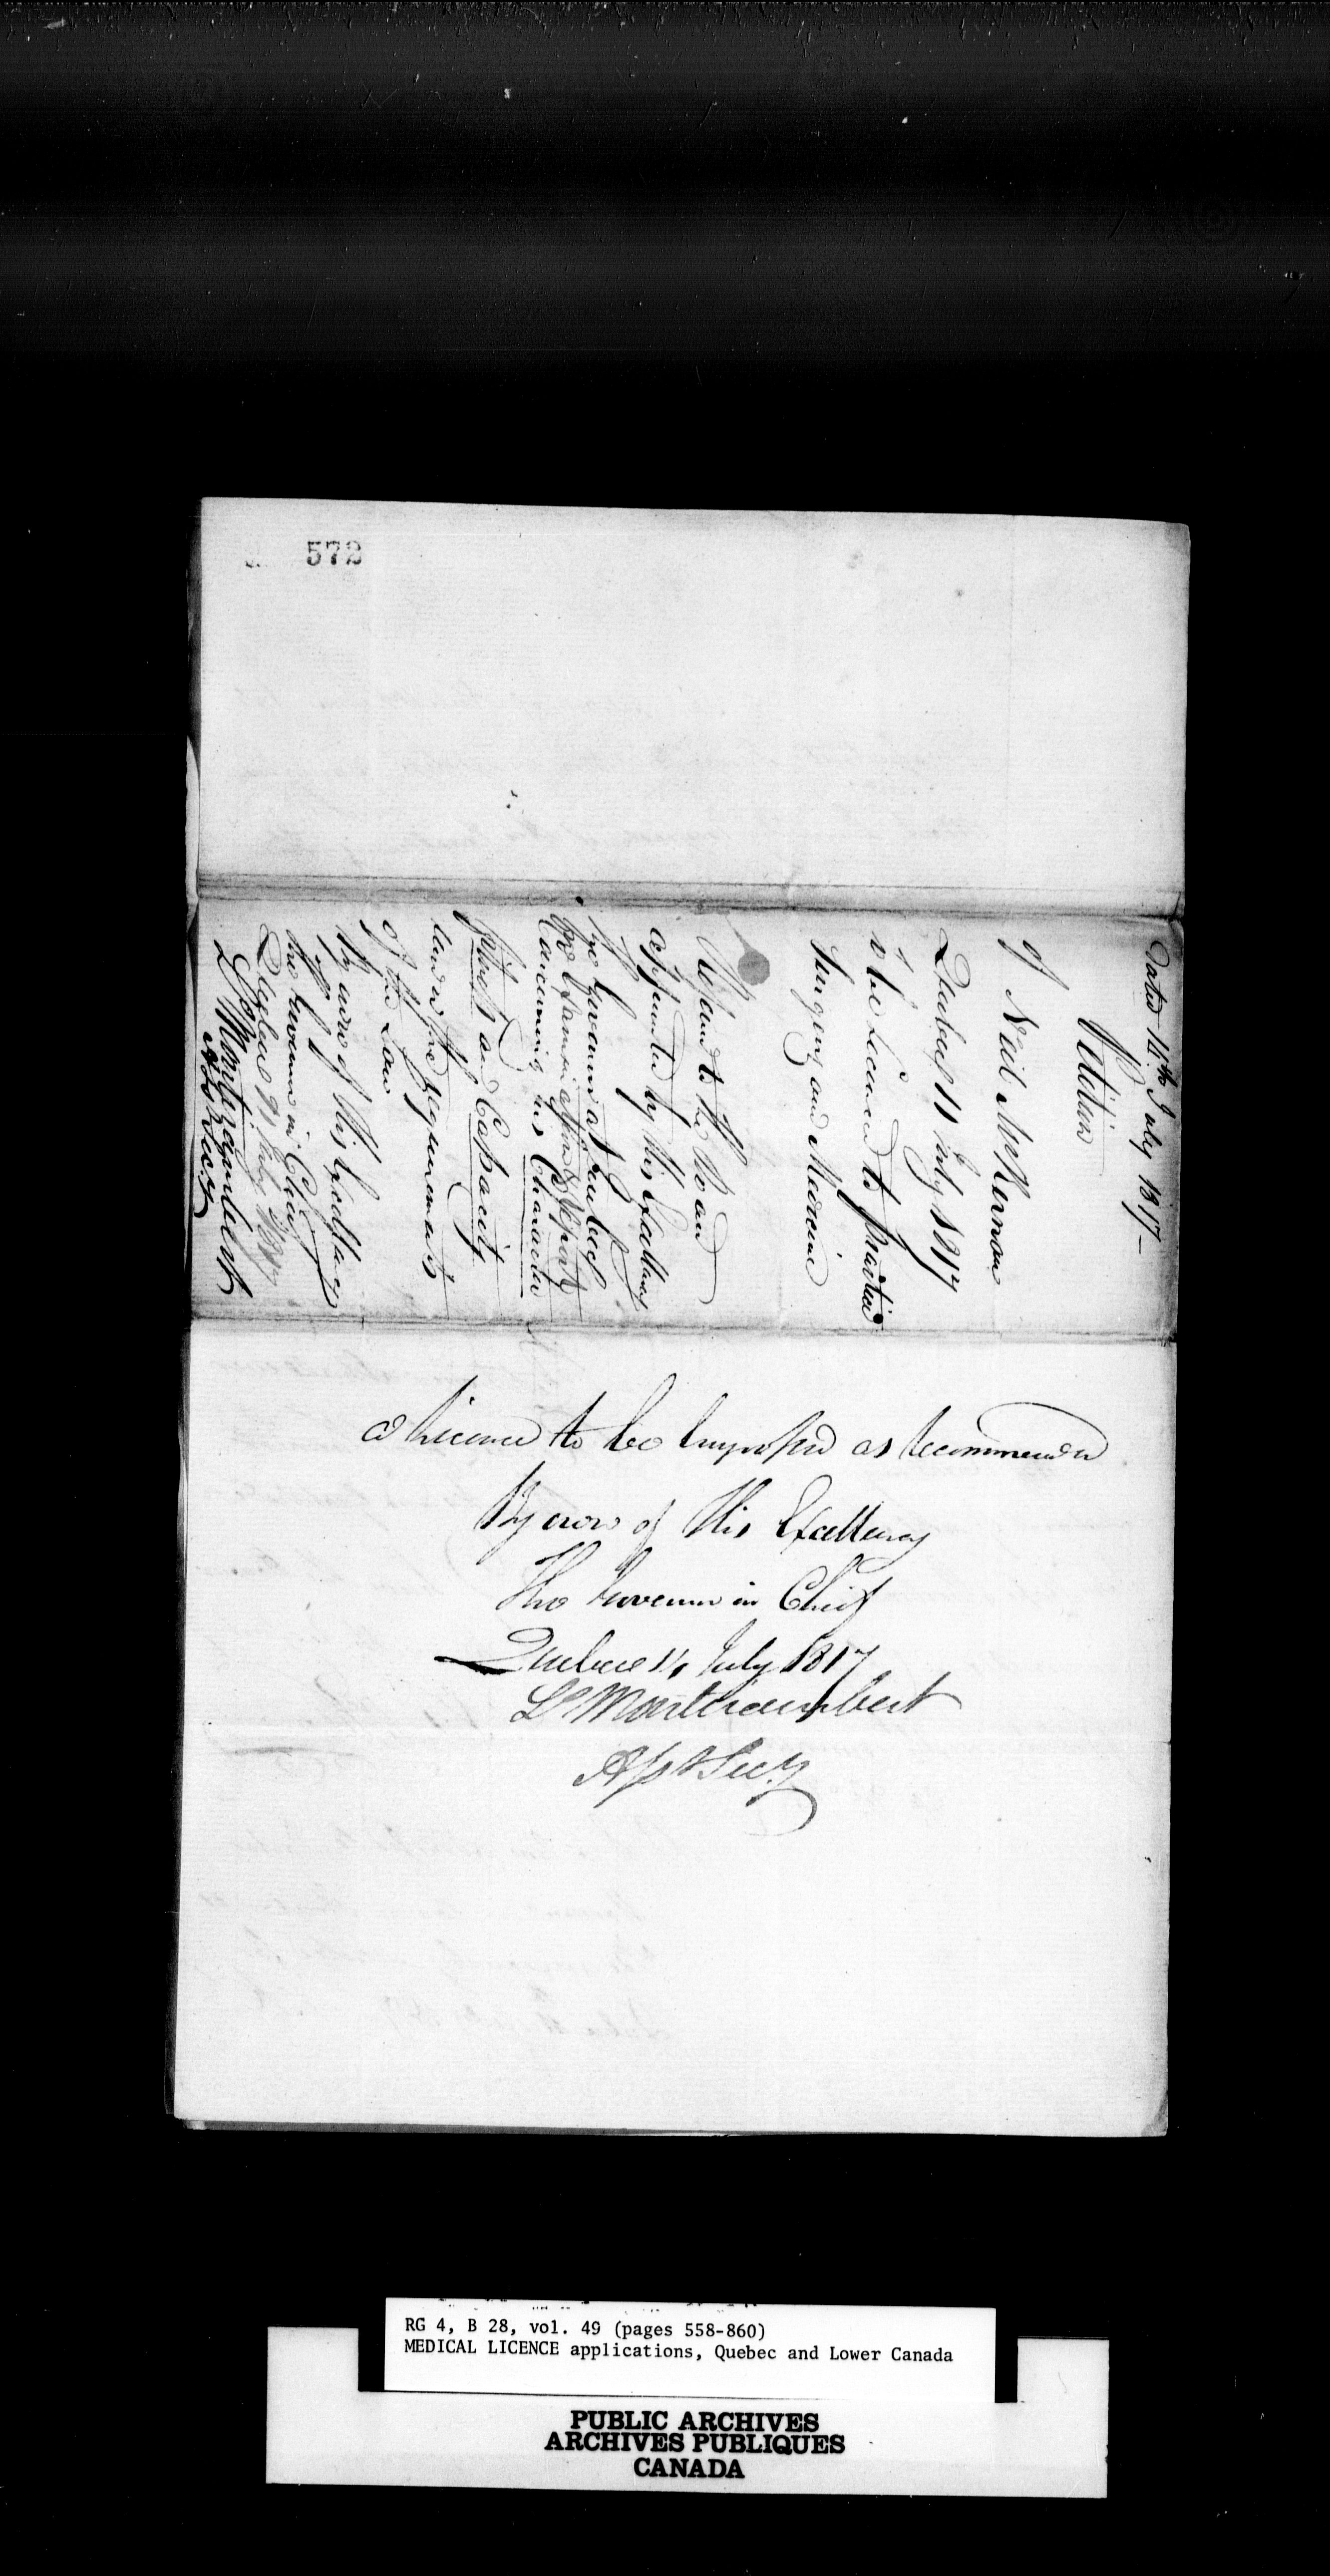 572
Dated 14th July 1817—
Petition
of Neil McKernon
Quebec 11 July 1817
to be Licenced to Practice
Surgery and Medicine
to the Board
appointed by His Excellency
the Governor at Quebec
for Examination & Report
Concerning his Character
fitness and Capacity
and the Requirements
of the Law
By order of His Excellency
the Governor in Chief
Quebec 11 July 1817
Ls Montizambert
Asst Secy
a Licence to be Engrossed as Recommended
By order of His Excellency
The Governor in Chief
Quebec 14 July 1817
Ls Montizambert
Asst Secy
RG 4, B 28, vol. 49 (pages 558-860)
MEDICAL LICENCE applications, Quebec and Lower Canada
PUBLIC ARCHIVES
ARCHIVES PUBLIQUES
CANADA